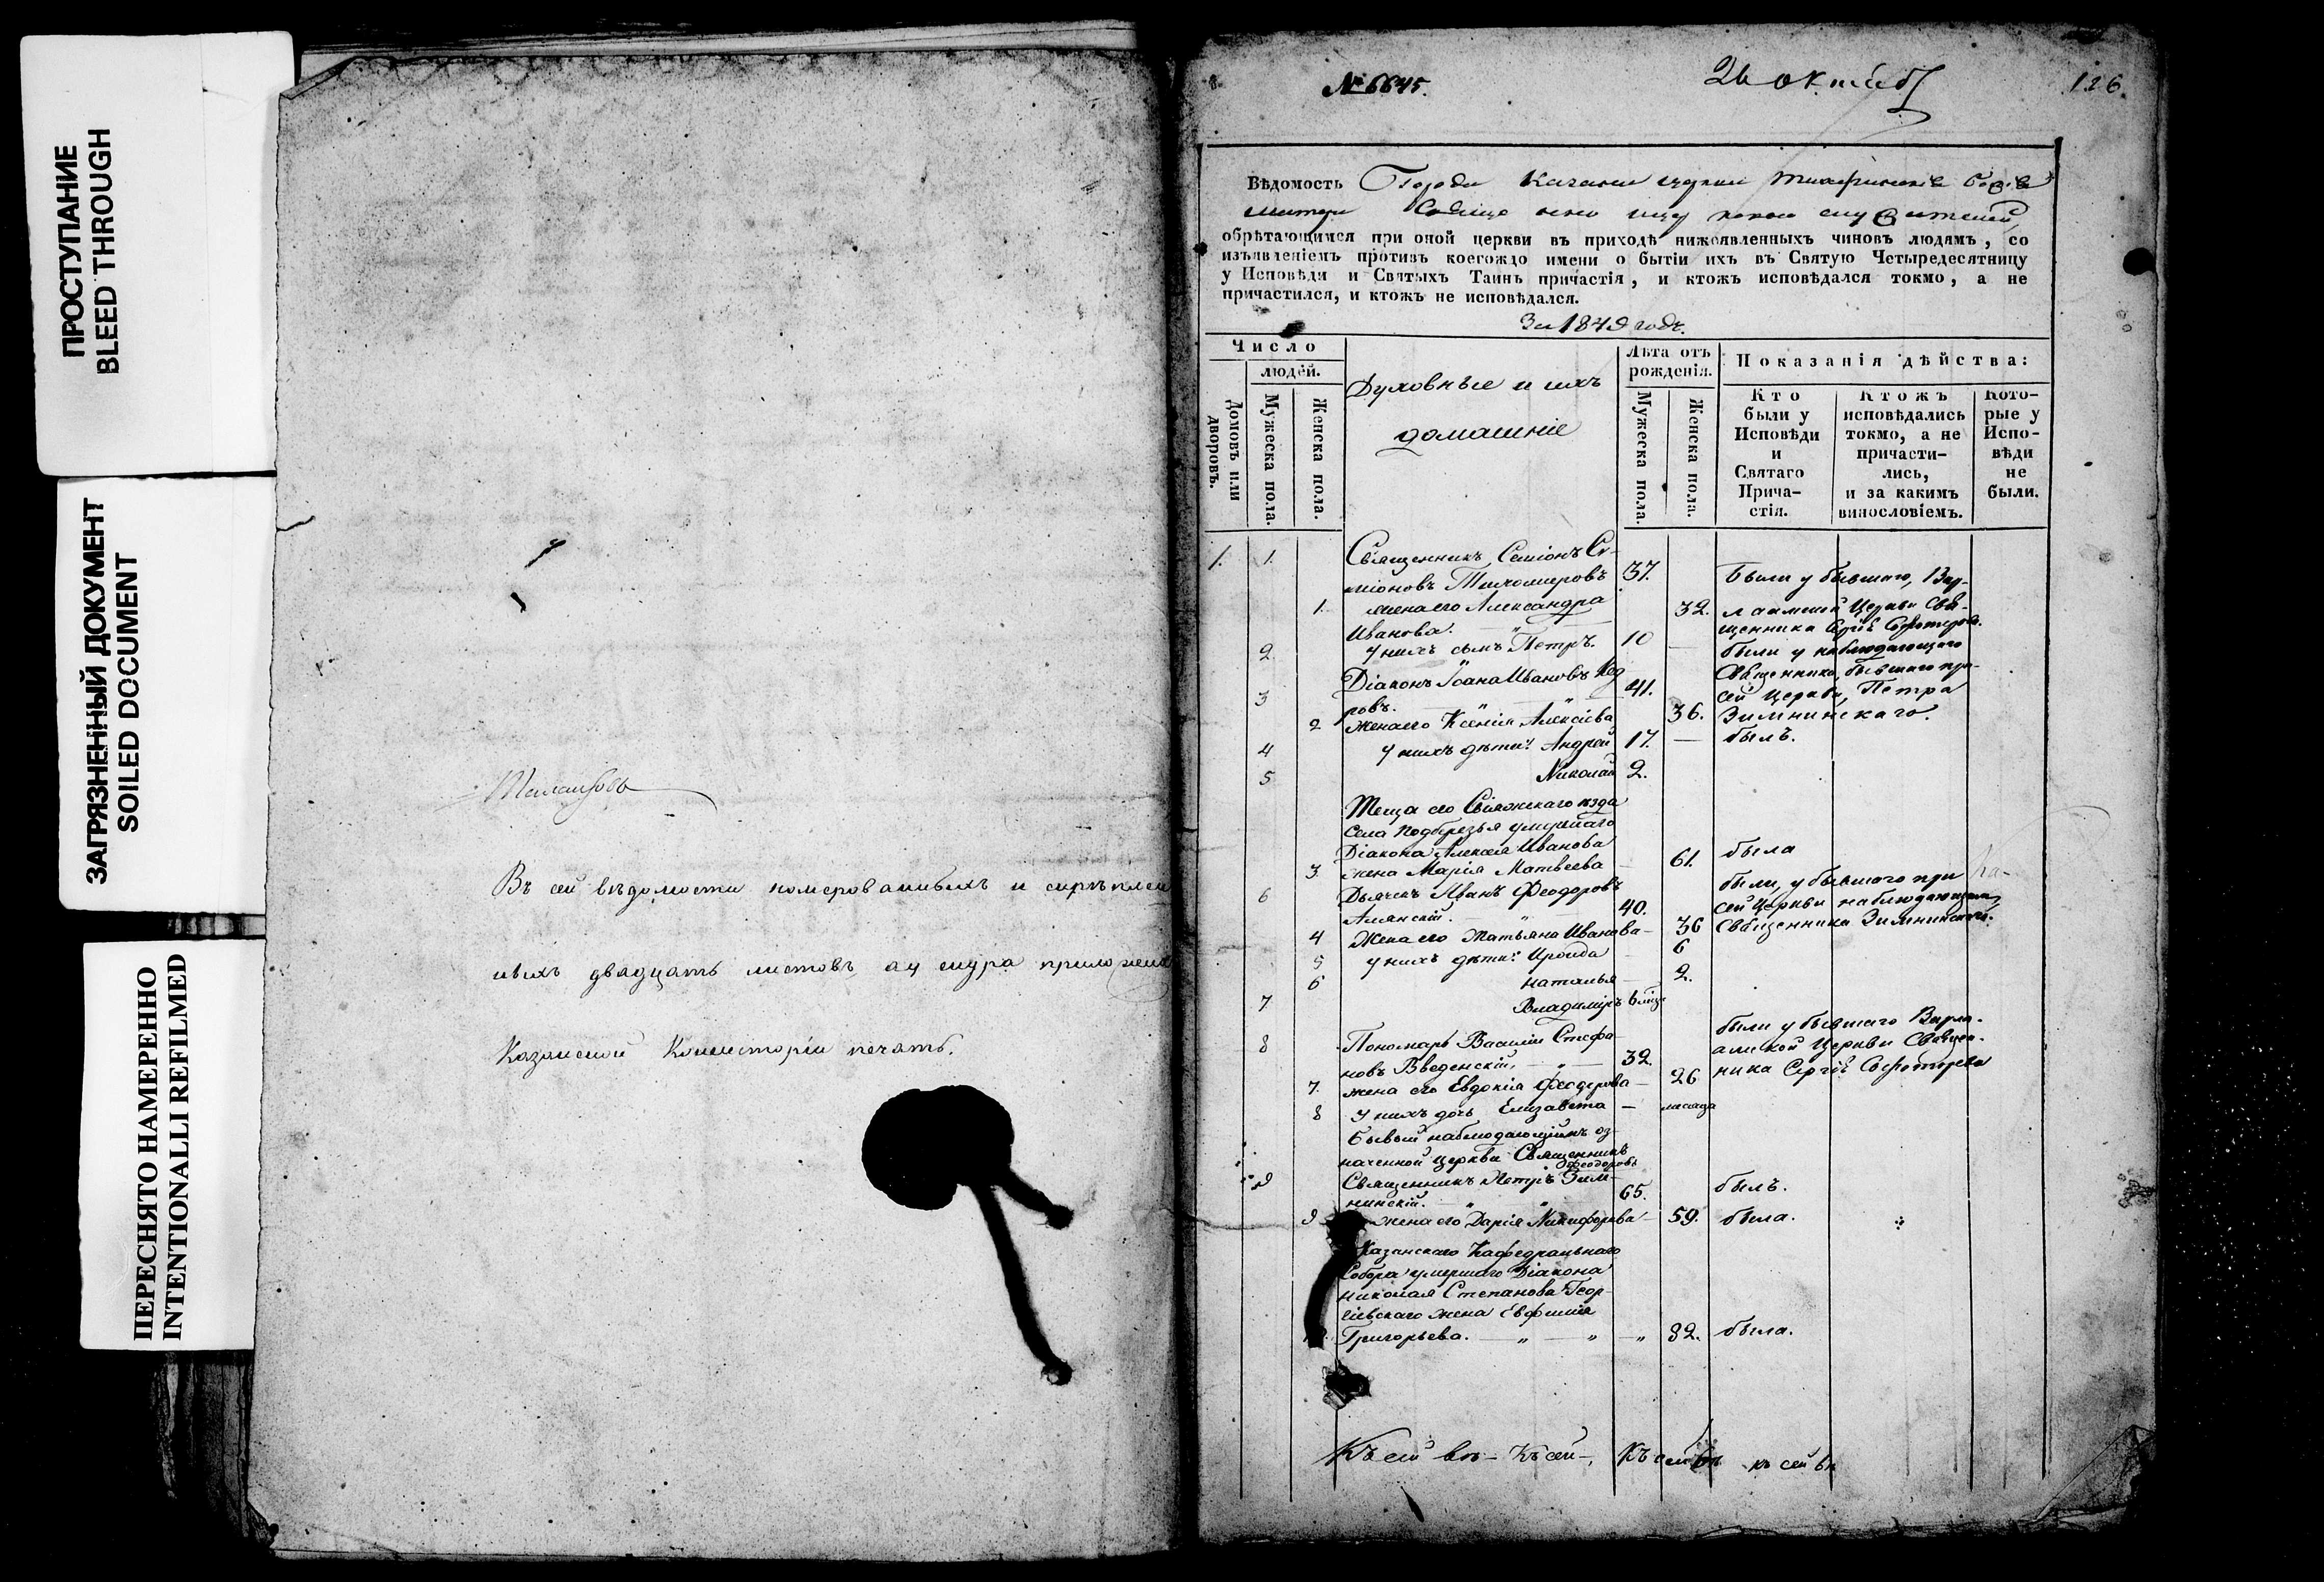 ПРОСТУПАНИЕ
BLEED THROUGH
ЗАГРЯЗНЕННЫЙ ДОКУМЕНТ
SOILED DOCUMENT
ПЕРЕСНЯТО НАМЕРЕННО
INTENTIONALLI REFILMED
Въ сей вѣдомости номерованныхъ и скрѣплен
ныхъ двадцать листовъ, а у шнура приложена
Казанской Консисторіи печать.
№ 6645.
26 октяб
126.
Вѣдомость Города Казани церкви Тихвинскія Божіе
Матери
обрѣтающимся при оной церкви въ приходѣ нижеявленныхъ чиновъ людямъ, со
изъявленіемъ противъ коегождо имени о бытіи ихъ въ Святую Четыредесятницу
у Исповѣди и Святыхъ Таинъ причастія, и ктожъ исповѣдался токмо, а не
причастился, и ктожъ не исповѣдался.
За 1849 годъ.
Число
людей.
Домовъ или дворовъ.
Мужеска пола.
Женска пола.
Духовные и ихъ
домашніе
Лѣта отъ рожденія.
Мужеска пола.
Женска пола.
Показанія дѣйства:
Кто были у Исповѣди и Святаго Прича- стія.
Ктожъ исповѣдались токмо, а не причасти- лись, и за какимъ винословіемъ.
Кото- рые у Испо- вѣди не были.
1. 1. Священникъ Симіонъ Си-
міоновъ Тихомировъ 37. Были у бывшаго, Вар-
1. жена его Александра 32. лаамской Церкви Свя-
Иванова. щенника Сергія
2 у нихъ сынъ Петръ. 10 были у наблюдающаго
Діаконъ Іоанъ Ивановъ Кед Священника, бывшаго при
3 ровъ. 41. сей Церкви, Петра
2 Жена его Ксенія Алексіева 36. Зимнинскаго.
4 у нихъ дѣти: Андрей 17. былъ.
5 Николай 2.
Теща его Свіяжскаго уѣзда
Села Подберезья умершаго
Діакона Алексея Иванова
3 жена Марія Матвеева 61. была
6 Дьячекъ Иванъ Феодоровъ были, у бывшаго при
Алянскій. 40. сей Церкви наблюдающаго
4 Жена его Татьяна Иванова 36 Священника Зимнинскаго.
5 у нихъ дѣти: Ироида 6
6 наталья 2.
7 Владиміръ
8 Пономарь Василій Стефа были у бывшаго Варла-
новъ Введенскій, 32. амской Церкви Священ-
7. жена его Евдокія Феодорова 26 ника Сергія
8 у нихъ дочь Елизавета
Бывый наблюдающимъ оз-
наченной церкви Священникъ
Феодоровъ
9 Священникъ Петръ Зим-
нинскій. 65. былъ.
9 жена его Дарія Никифорова 59. была.
Казанскаго Кафедральнаго
Собора умершаго Діакона
Николая Степанова Геор-
гіевскаго жена Евфимія
Григорьева. 82. была.
Къ сей вѣ- Къ сей-, Къ сей вѣ къ сей вѣ